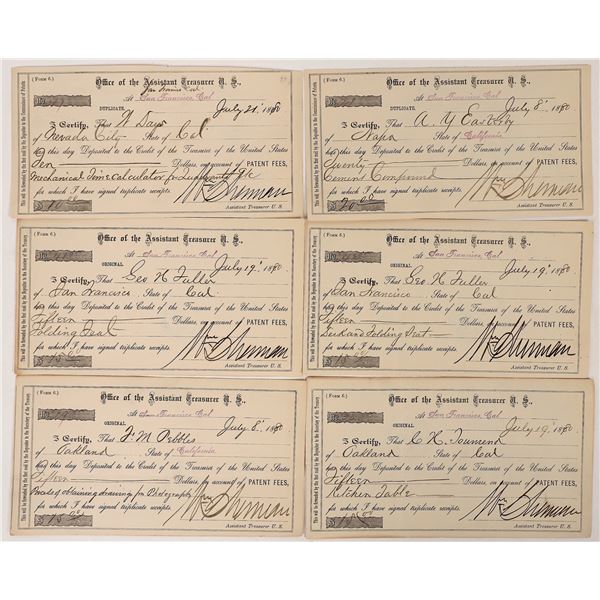 (Form 6.)
Office of the Assistant Treasurer U. S.,
San Francisco Cal
At San Francisco, Cal
DUPLICATE.
July 21, 1880
I Certify, That W Davis
of Nevada City State of Cal
has this day Deposited to the Credit of the Treasurer of the United States
Ten Dollars, on account of PATENT FEES,
Mechanical Time Calculator for
for which I have signed duplicate receipts.
$10.00
Wm Sherman
Assistant Treasurer U. S.
(Form 6.)
Office of the Assistant Treasurer U. S.,
At San Francisco, Cal
DUPLICATE.
July 8, 1880
I Certify, That A. Y
of Napa State of California
has this day Deposited to the Credit of the Treasurer of the United States
Twenty Dollars, on account of PATENT FEES,
Cement Compound
for which I have signed triplicate receipts.
$20.00
Wm Sherman
Assistant Treasurer U. S.
(Form 6.)
Office of the Assistant Treasurer U. S.,
At San Francisco, Cal
ORIGINAL.
July 19, 1880
I Certify, That Geo H Fuller
of San Francisco, State of Cal
has this day Deposited to the Credit of the Treasurer of the United States
Fifteen Dollars, on account of PATENT FEES,
Folding Seat
for which I have signed triplicate receipts.
$15.00
Wm Sherman
Assistant Treasurer U. S.
(Form 6.)
Office of the Assistant Treasurer U. S.,
At San Francisco, Cal
ORIGINAL.
July 19, 1880
I Certify, That Geo H Fuller
of San Francisco State of Cal
has this day Deposited to the Credit of the Treasurer of the United States
Fifteen Dollars, on account of PATENT FEES,
Desk and Folding Seat
for which I have signed triplicate receipts.
$15.00
Wm Sherman
Assistant Treasurer U. S.
(Form 6.)
Office of the Assistant Treasurer U. S.,
At San Francisco, Cal
ORIGINAL.
July 8, 1880
I Certify, That F. M Pebbles
of Oakland State of California
has this day Deposited to the Credit of the Treasurer of the United States
Fifteen Dollars, on account of PATENT FEES,
Process of obtaining drawing for Photography
for which I have signed triplicate receipts.
$15.00
Wm Sherman
Assistant Treasurer U. S.
(Form 6.)
Office of the Assistant Treasurer U. S.,
At San Francisco, Cal
ORIGINAL.
July 19, 1880
I Certify, That C. H. Townsend
of Oakland State of Cal
has this day Deposited to the Credit of the Treasurer of the United States
Fifteen Dollars, on account of PATENT FEES,
Kitchen Table
for which I have signed triplicate receipts.
$15.00
Wm Sherman
Assistant Treasurer U. S.